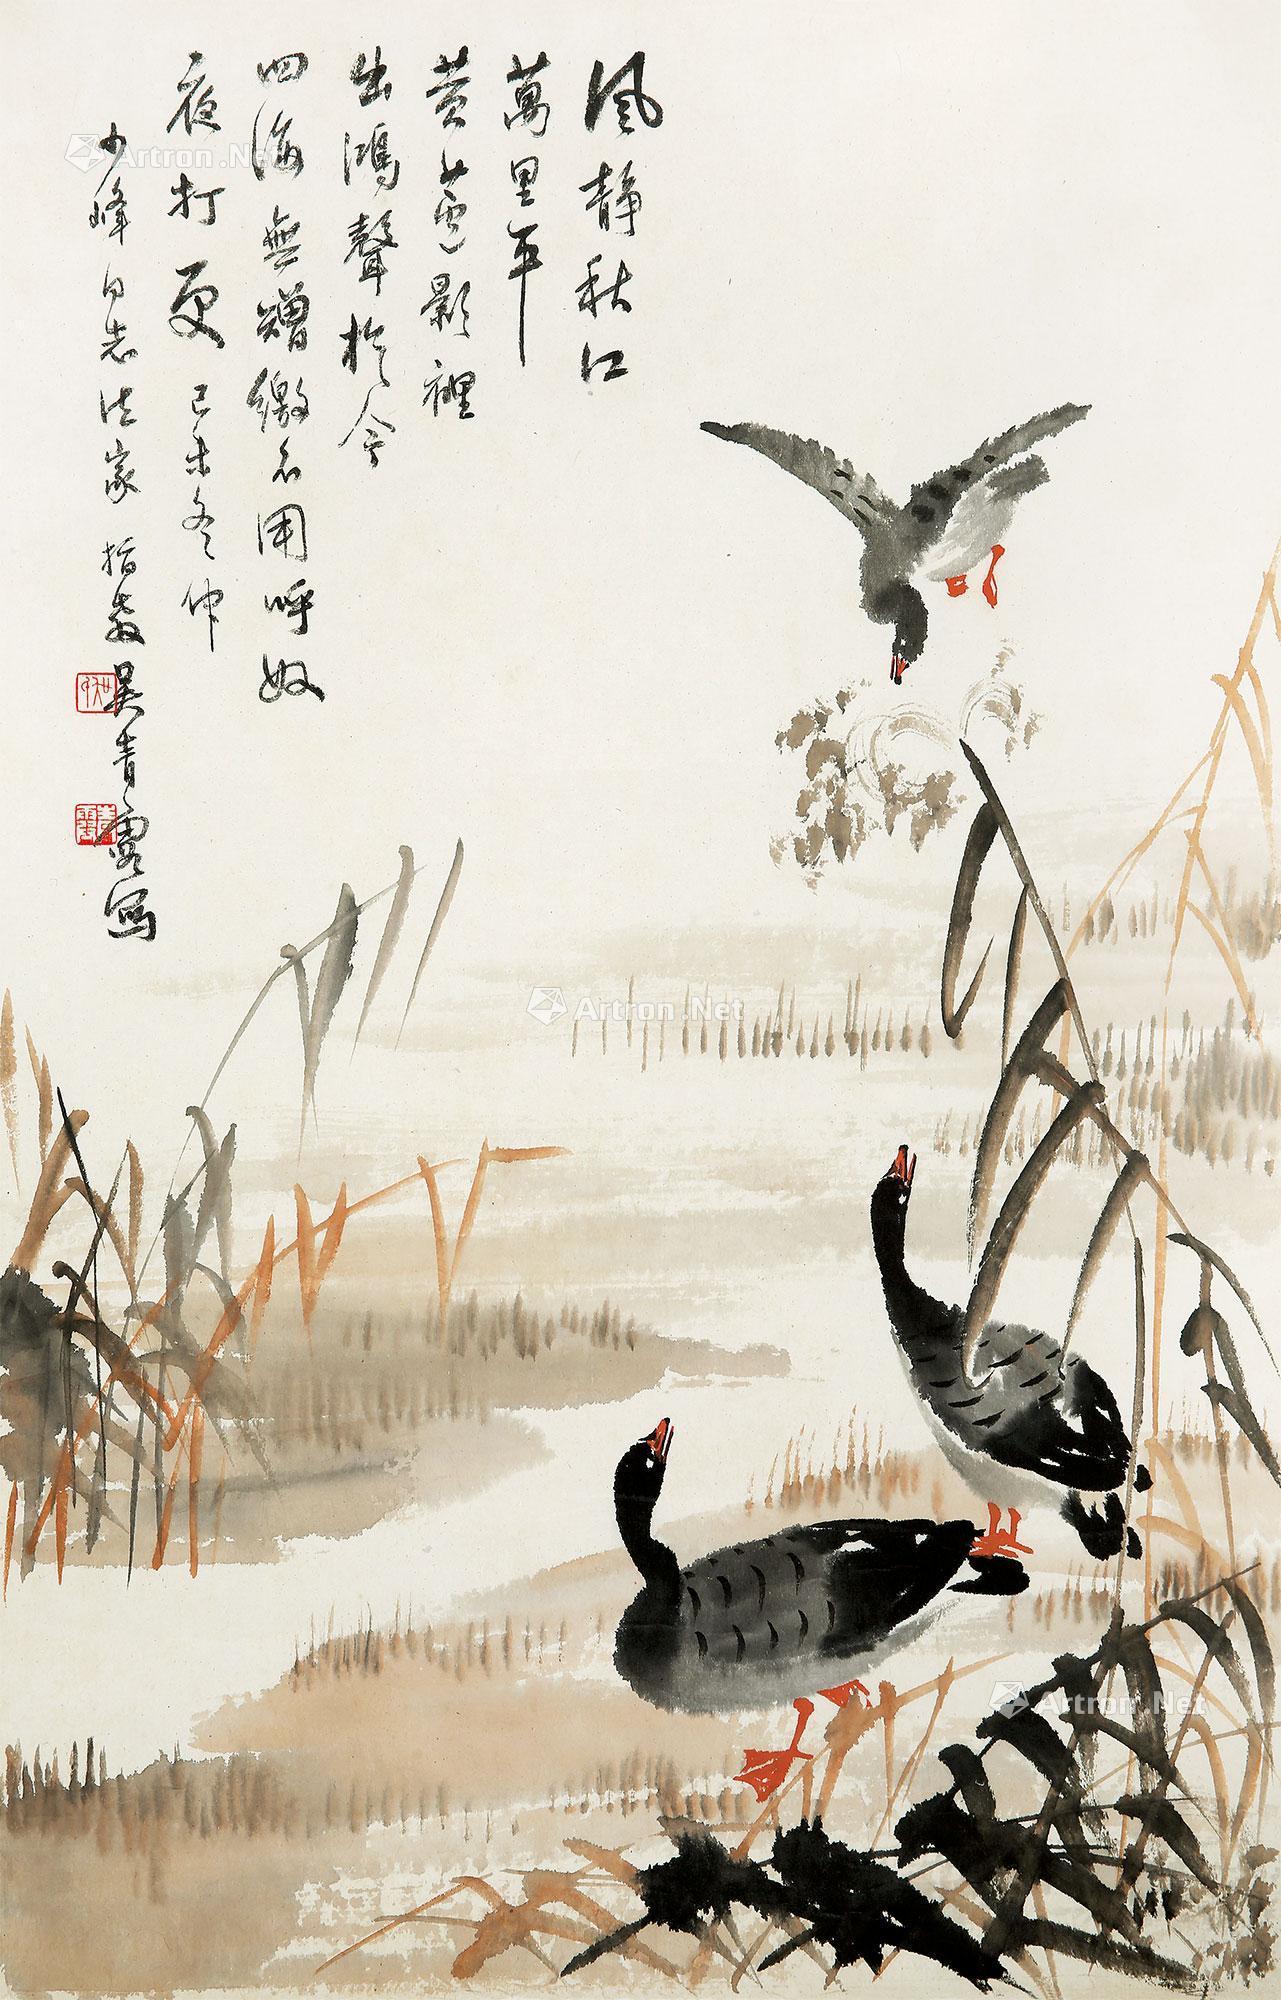 風静秋江
萬里平
黄蘆影裡
出鴻聲於今
四海無矰繳不用呼奴
夜打更 己未冬仲
少峰同志法家指教 吴青霞写
青霞
Artron.Net
Artron.Net
Artron.Net